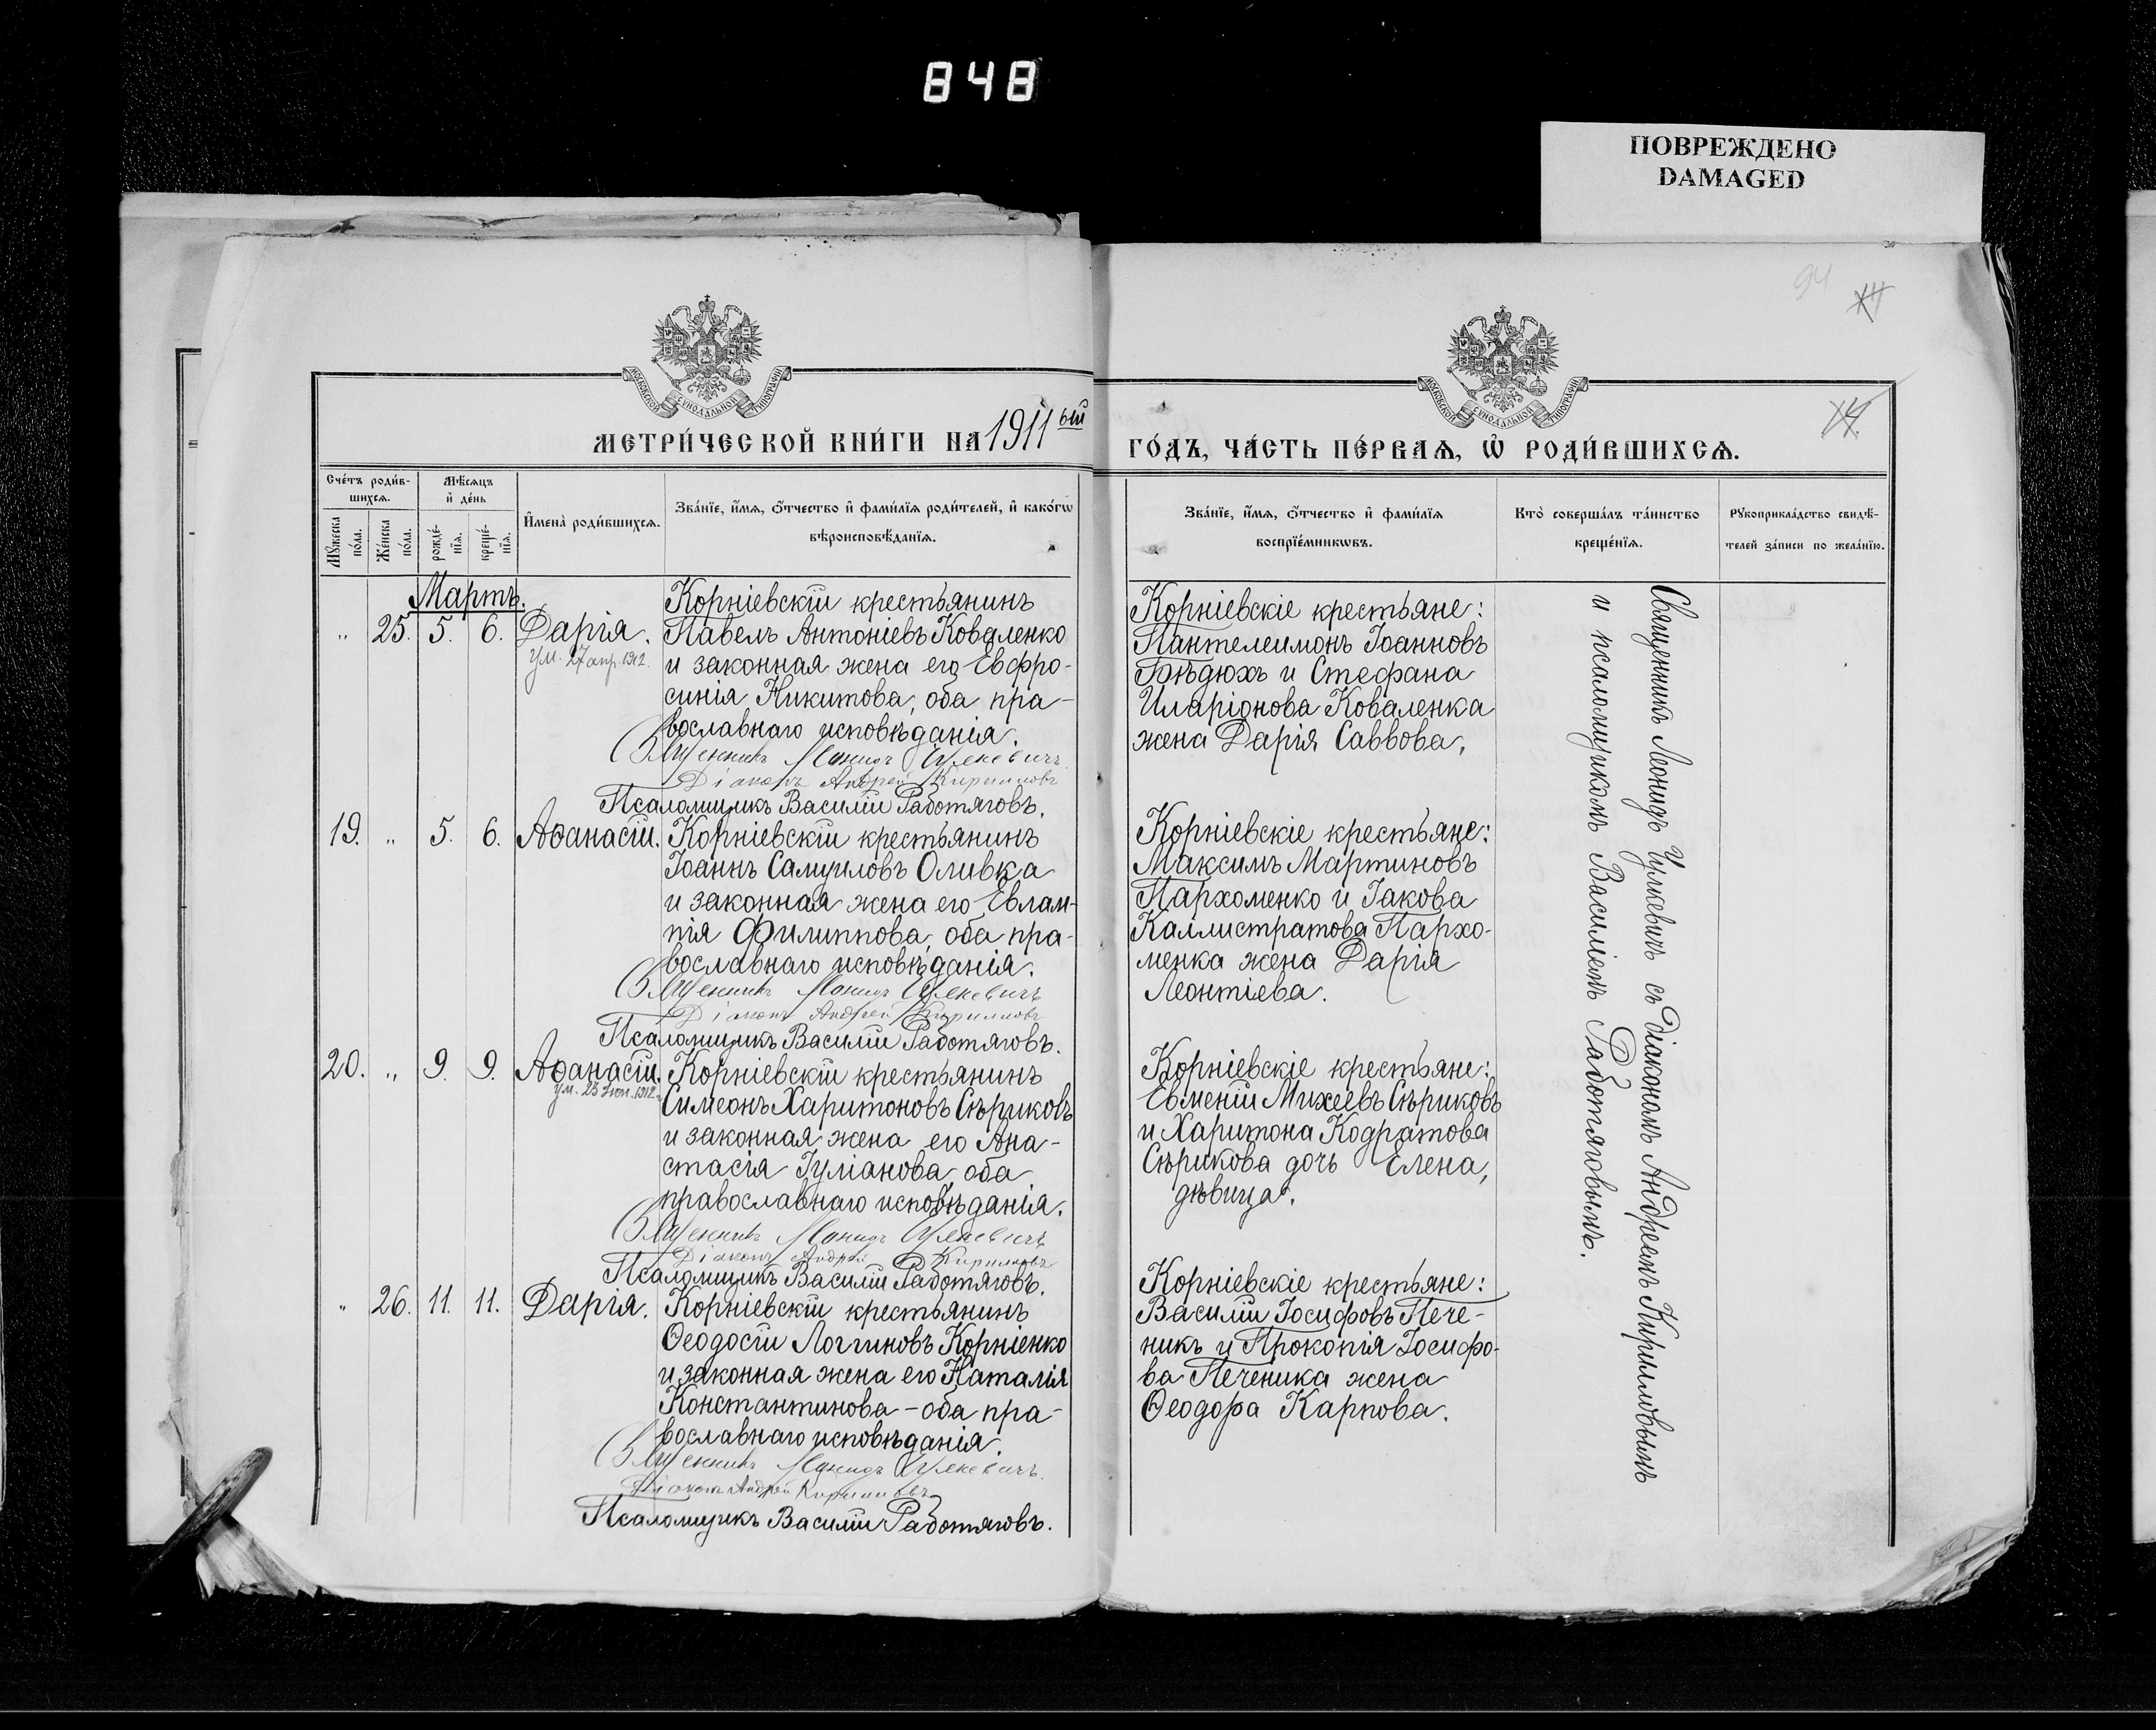 848
ПОВРЕЖДЕНО
DAMAGED
94
МОСКОВСКОЙ СѴНОДАЛЬНОЙ ТИПОГРАФІИ
МОСКОВСКОЙ СѴНОДАЛЬНОЙ ТИПОГРАФІИ
МЕТРИ́ЧЕСКОЙ КНИ́ГИ НА 1911ый
ГО́ДЪ, ЧА́СТЬ ПЕ́РВАѦ, Ѡ҆ РОДИ́ВШИХСѦ.
Сче́тъ роди́в-
шихсѧ.
Мѣ́сѧцъ
и҆ де́нь
Мꙋ́жеска
по́ла.
Же́нска
по́ла.
рожде́-
нїѧ.
креще́-
нїѧ.
И҆мена̀ роди́вшихсѧ.
Зва́нїе, и҆́мѧ, ѻ҆́тчество и҆ фами́лїѧ роди́телей, и҆ како́гѡ
вѣроисповѣ́данїѧ.
Зва́нїе, и҆́мѧ, ѻ҆́тчество и҆ фами́лїѧ
воспрїе́мникѡвъ.
Кто̀ соверша́лъ та́инство
креще́нїѧ.
Рꙋкоприкла́дство свидѣ́-
телей за́писи по жела́нїю.
Мартъ.
" 25. 5. 6. Дарія.
ум. 27 апр. 1912.
Корніевскій крестьянинъ
Павелъ Антоніевъ Коваленко
и законная жена его Евфро-
синія Никитова, оба пра-
вославнаго исповѣданія.
Священникъ Леонидъ Цулкевичъ
Діаконъ Андрей Кирилловъ
Псаломщикъ Василій Работяговъ.
Корніевскіе крестьяне:
Пантелеимонъ Іоанновъ
Бѣдюхъ и Стефана
Иларіонова Коваленка
жена Дарія Саввова.
19. " 5. 6. Аѳанасій.
Корніевскій крестьянинъ
Іоаннъ Самуиловъ Оливка
и законная жена его Евлам-
пія Филиппова, оба пра-
вославнаго исповѣданія.
Священникъ Леонидъ Цулкевичъ
Діаконъ Андрей Кирилловъ
Псаломщикъ Василій Работяговъ.
Корніевскіе крестьяне:
Максимъ Мартиновъ
Пархоменко и Іакова
Каллистратова Пархо-
менка жена Дарія
Леонтіева.
20. " 9. 9. Аѳанасій.
ум. 23 Іюн. 1912.
Корніевскій крестьянинъ
Симеонъ Харитоновъ Сѣриковъ
и законная жена его Ана-
стасія Іуліанова, оба
православнаго исповѣданія.
Священникъ Леонидъ Цулкевичъ
Діаконъ Андрей Кирилловъ
Псаломщикъ Василій Работяговъ.
Корніевскіе крестьяне:
Евменій Михеевъ Сѣриковъ
и Харитона Кодратова
Сѣрикова дочь Елена,
дѣвица.
" 26. 11. 11. Дарія.
Корніевскій крестьянинъ
Ѳеодосій Логгиновъ Корніенко
и законная жена его Наталія
Константинова - оба пра-
вославнаго исповѣданія.
Священникъ Леонидъ Цулкевичъ.
Діаконъ Андрей Кирилловъ
Псаломщикъ Василій Работяговъ.
Корніевскіе крестьяне:
Василій Іосифовъ Пече-
никъ и Прокопія Іосифо-
ва Печеника жена
Ѳеодора Карпова.
Священникъ Леонидъ Цулкевичъ съ діакономъ Андреемъ Кирилловымъ
и псаломщикомъ Василіемъ Работяговымъ.